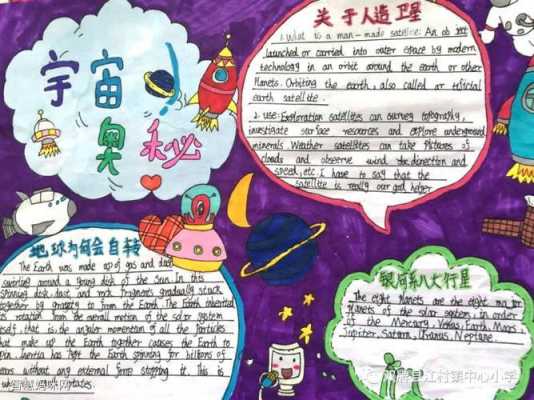 宇宙
奥秘
关于人造卫星
1. What is a man-made satellite: An object
launched or carried into outer space by modern
technology in an orbit around the earth or other
Planets. Orbiting the earth, also called artificial
earth satellite.
2. use: Exploration satellites can survey topography,
investigate surface resources and explore underground
minerals Weather satellites can take Pictures of
clouds and observe wind direction and
speed, etc. I have to say that the
satellite is really our god helper
地球为何会自转
The Earth was made up of gas and dust
swirling around a young disk of the sun. In this
spinning disk, dust and rock fragments gradually stuck
together by gravity to from the Earth. The Earth inherited
its rotation from the overall motion of the solar system
itself, that is, the angular momentum of all the Particles
that make up the Earth together causes the Earth to
spin. Inertia has kept the Earth spinning for billions of
years without any external force stopping it. This is
why rotates.
银河系八大行星
The eight Planets are the eight major
planets of the solar system, in order
of the Mercury, Venus, Earth, Mars,
Jupiter, Saturn, Uranus, Neptune.
智慧妈咪网
江村镇中心小学